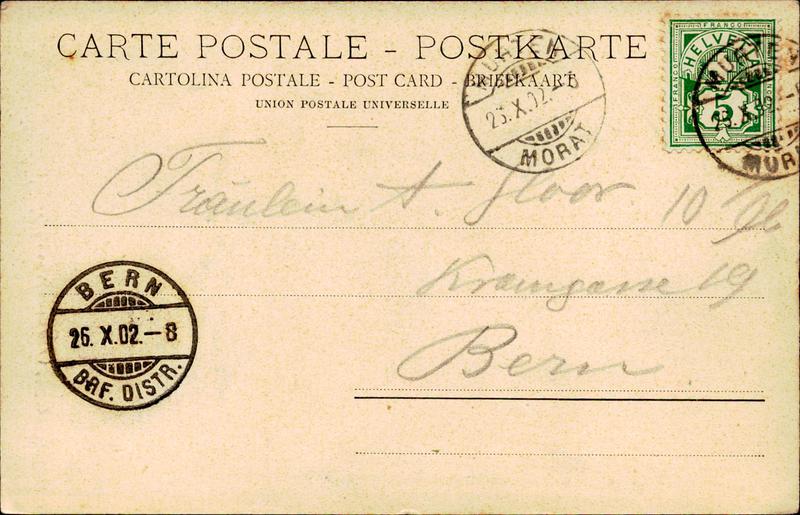 CARTE POSTALE - POSTKARTE
CARTOLINA POSTALE - POST CARD - BRIEFKAART
UNION POSTALE UNIVERSELLE
MURTEN
25.X.02.-8
MORAT
FRANCO
HELVETIA
FRANCO
5
Fräulein A. Gloor.
Kramgasse 19
Bern
BERN
26.X.02.-8
BRF. DISTR.